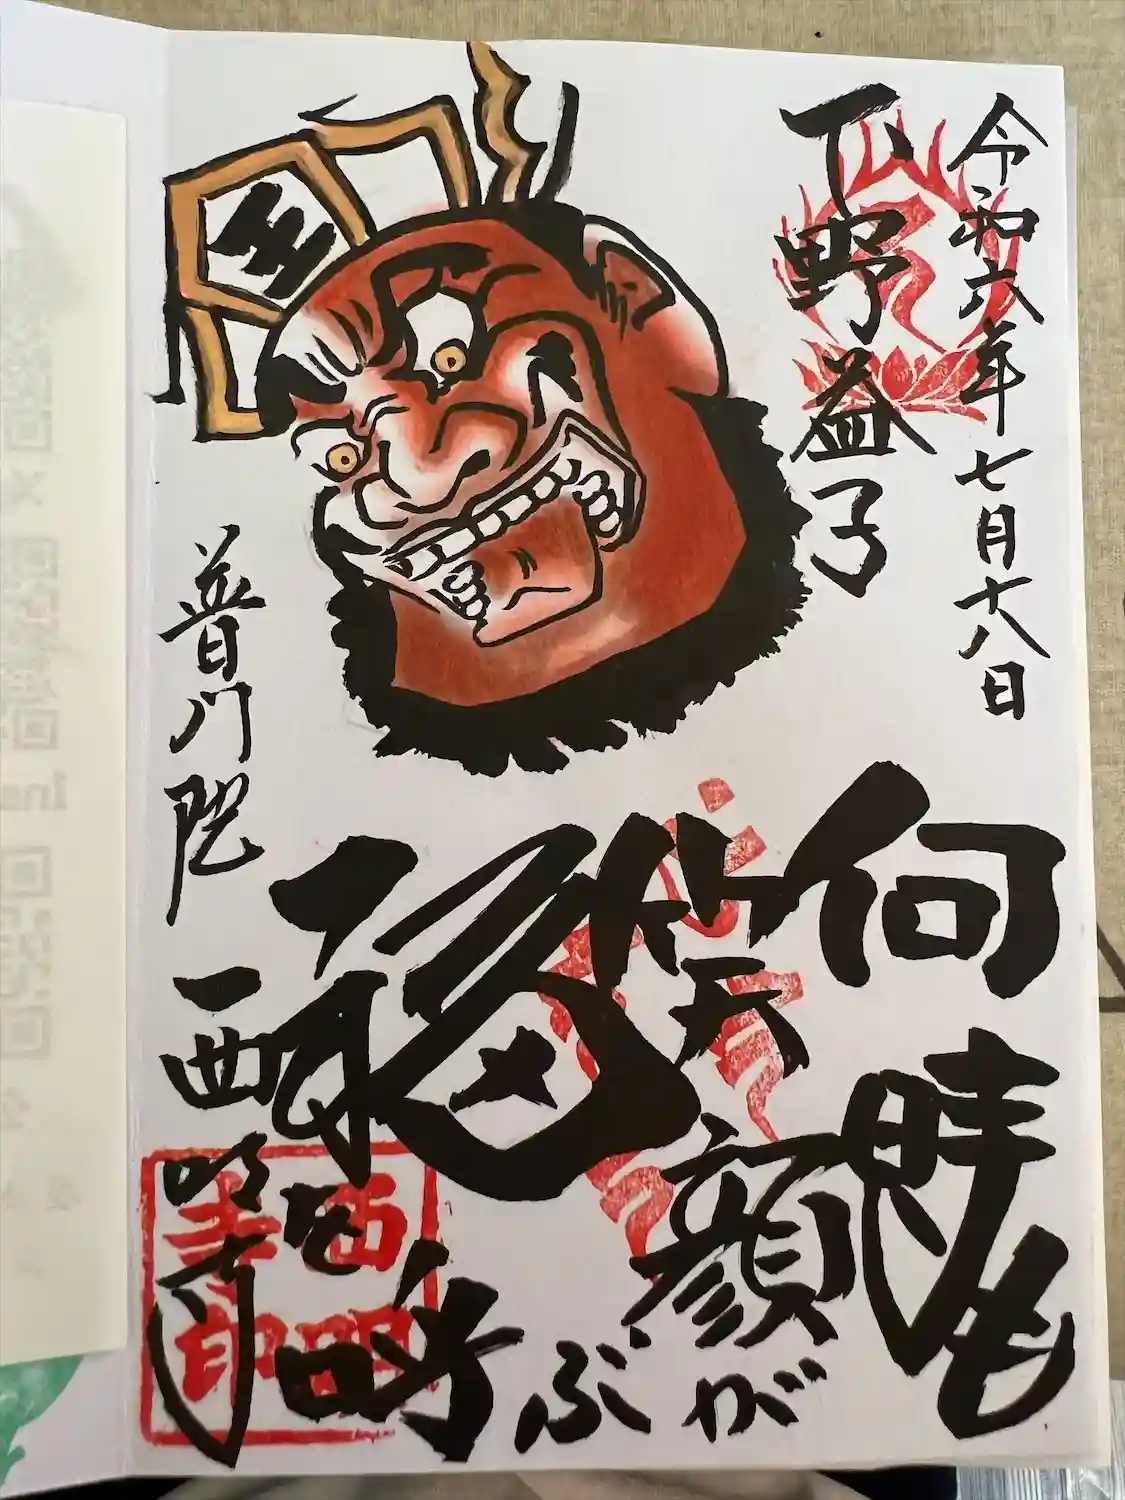 令和六年七月十八日
下野益子
何時も
笑顔が
福を呼ぶ
王
普門院
西明寺
西明
寺印